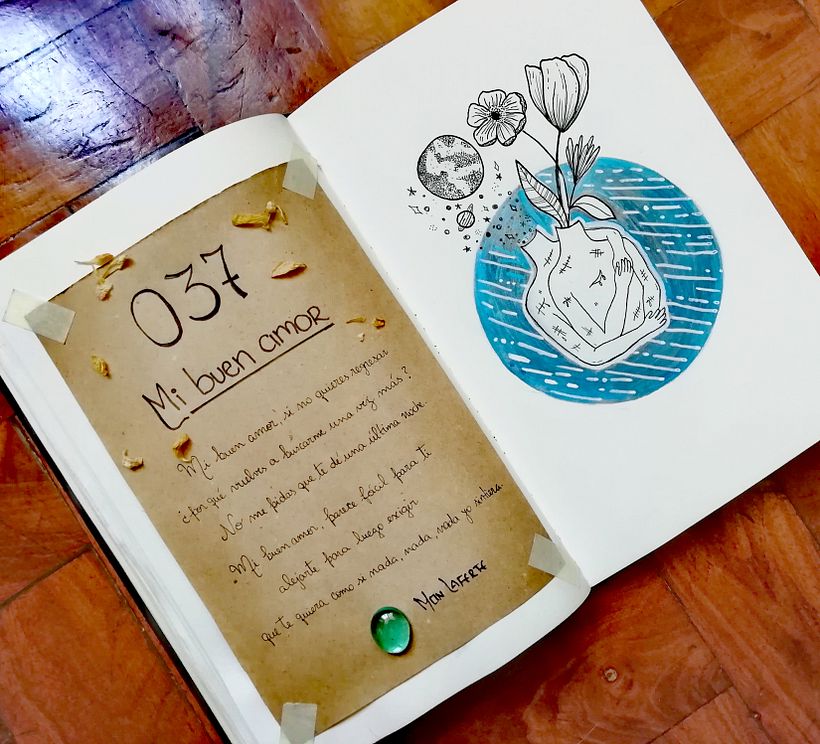 037
Mi buen amor
Mi buen amor, si no quieres regresar
¿Por qué vuelves a buscarme una vez más?
No me pidas que te dé una última noche.
Mi buen amor, parece fácil para ti
alejarte para luego exigir
que te quiera como si nada, nada, nada yo sintiera.
Mon Laferte